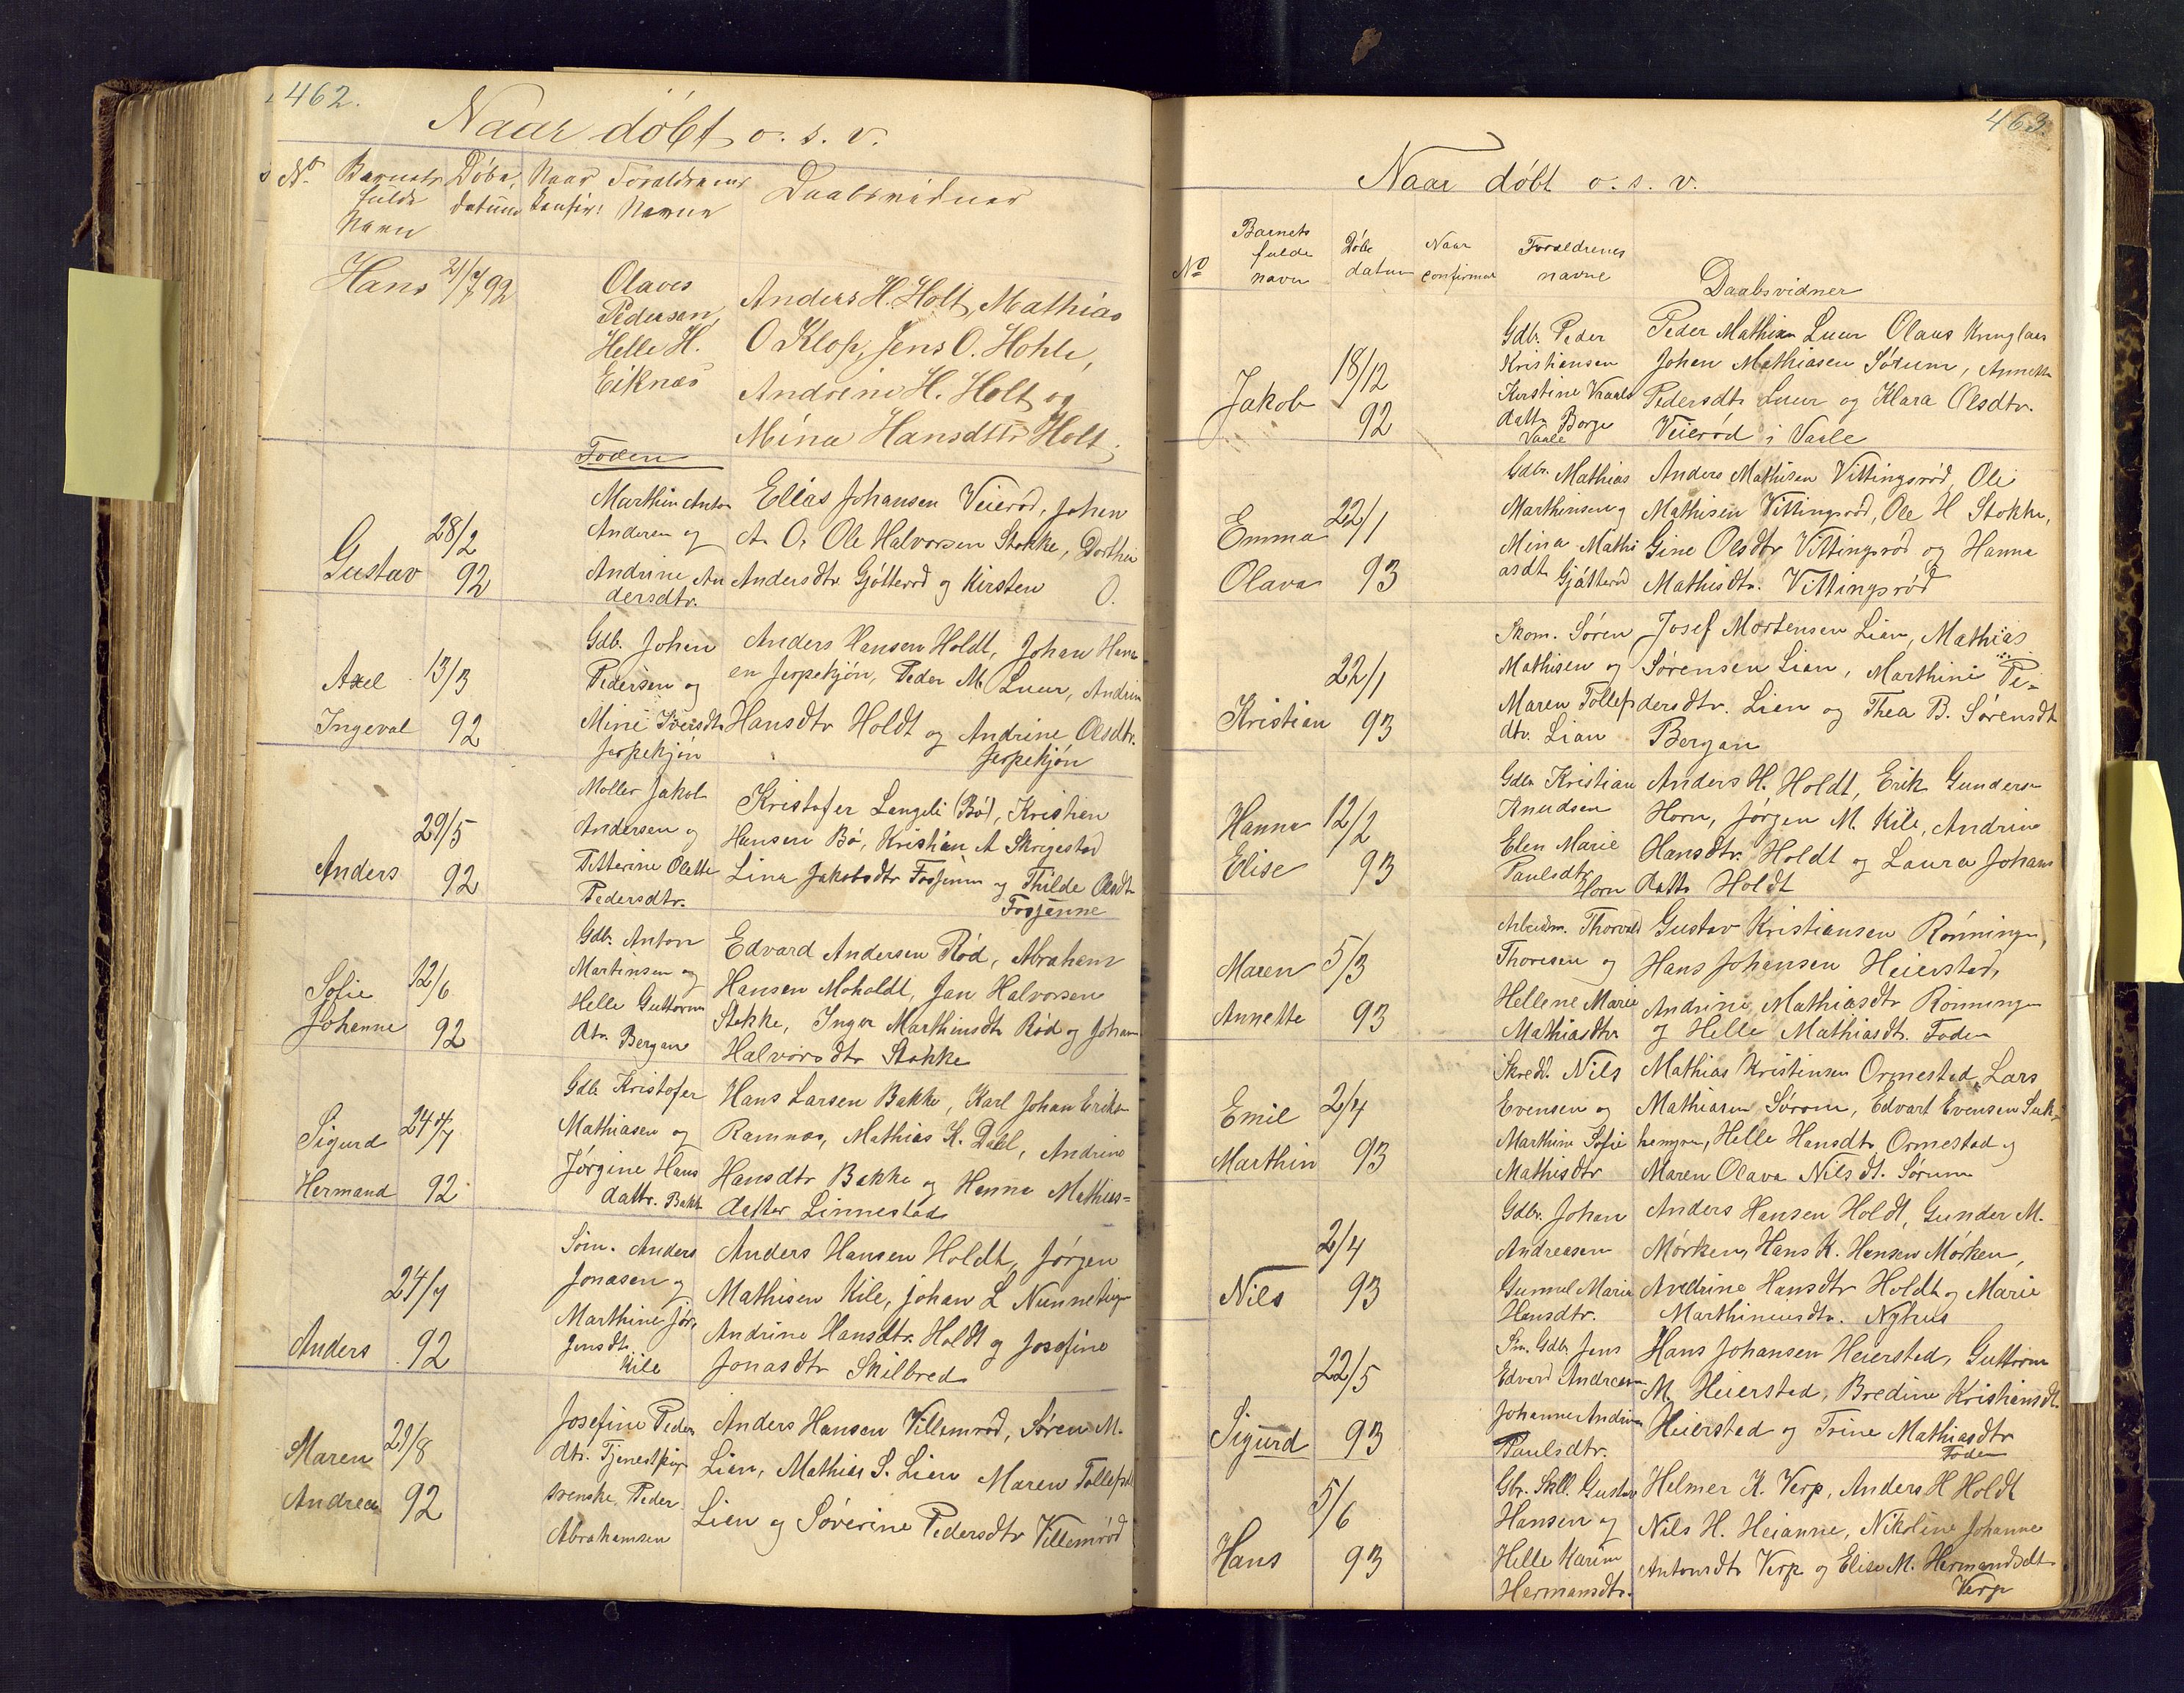 462.
Naar döbt o. s. v.
No. Barnets Döbe, Naar Forældrenes Daabsvidner
fulde datum konfir: Navne
Navn
Hans 21/7 92 Olaves
Pedersen
Helle H.
Eiknes
Anders H. Holt, Mathias
O Klop, Jens O. Hohle,
Andrine H. Holt og
Mina Hansdttr Holt.
Foden
Gustav 28/2 92
Marthin Anton
Andersen og
Andrine An
dersdtr.
Elias Johansen Veierød, Johan
A. O. Ole Halvorsen Stokke, Dorthea
Andersdtr Gjötterød og Kirsten O.
Axel Ingeval 13/3 92
Gdb. Johan
Pedersen og
Mine Iversdtr
Jerpekjön
Anders Hansen Holdt, Johan Hans
en Jerpekjön, Peder M. Luur, Andrine
Hansdtr Holdt og Andrine Olsdtr.
Jerpekjön
Anders 29/5 92
Møller Jakob
Andersen og
Petterine Olette
Pedersdtr.
Kristofer Langeli (Bö), Kristian
Hansen Bö, Kristian A Skrigestad
Lina Jakobsdtr Fossenne og Thilde Olsdtr
Fossenne
Sofie Johanne 12/6 92
Gdb. Anton
Martinsen og
Helle Guttorms
dtr. Bergan
Edvard Andersen Röd, Abraham
Hansen Moholdt, Jan Halvorsen
Stokke, Inger Marthinsdtr Röd og Johanne
Halvorsdtr Stokke
Sigurd Hermand 24/7 92
Gdb. Kristofer
Mathiasen og
Jørgine Hans
dattr. Bakke
Hans Larsen Bakke, Karl Johan Eriksen
Ramnæs, Mathias K. Dal, Andrine
Hansdtr Bakke og Hanna Mathias=
datter Linnestad
Anders 24/7 92
Söm. Anders
Jonasen og
Marthine Jör,
gensdtr.
Kile
Anders Hansen Holdt, Jörgen
Mathisen Kile, Johan L
Andrine Hansdtr. Holdt og Josefine
Jonasdtr Skilbred
Maren Andrea 21/8 92
Josefine Peders
dtr. Tjenestpige
svenske, Peder
Abrahamsen
Anders Hansen Villemröd, Sören M.
Lian, Mathias S. Lian Maren Tollefsdt
Lian og Söverine Pedersdtr Villemröd
463.
Naar döbt o. s. v.
No Barnets fulde navn Döbe datum Naar confirmer Forældrenes navne Daabsvidner
Jakob 18/12 92
Gdb. Peder
Kristiansen
Kirstine Vraals
dattr Borge
Vaale
Peder Mathisen Luur Olaus
Johan Mathiasen Sörum, Annette
Pedersdtr Luur og Klara Olsdtr.
Veieröd i Vaale
Emma Olava 22/1 93
Gdbr. Mathias
Marthinsen og
Mina Mathi
asdt Gjötteröd
Anders Mathisen Vittingsröd, Ole
Mathisen Vittingsröd, Ole H Stokke,
Gine Olsdtr Vittingsröd og Hanna
Mathisdtr. Vittingsröd
Kristian 22/1 93
Skom. Sören
Mathisen og
Maren Tollefs
dtr. Lian
Josef Mortensen Lian, Mathias
Sörensen Lian, Marthine Pe-
dersdtr. Lian og Thea B. Sörensdt
Bergan
Hanna Elise 12/2 93
Gdb. Kristian
Knudsen
Elen Marie
Paulsdtr
Horn
Anders H. Holdt, Erik Gundersen
Horn, Jörgen M. Kile, Andrine
Hansdtr. Holdt og Laura Johans
dattr Holdt
Maren Annette 5/3 93
Arbeidm. Thorvald
Thoresen og
Hellene Marie
Mathiasdtr
Gustav Kristiansen Rönningen,
Hans Johansen Heierstad,
Andrine Mathiasdtr Rönningen
og Helle Mathiasdt. Foden
Emil Marthin 2/4 93
Skredd. Nils
Evensen og
Marthine Sofie
Mathisdtr
Mathias Kristinsen Ormestad, Lars
Mathiasen Sörom, Edvart Evensen
Helle Hansdtr Ormestad og
Maren Olava Nilsdt. Sörum
Nils 2/4 93
Gdbr. Johan
Andreasen
Gunnul Marie
Hansdtr.
Anders Hansen Holdt, Gunder M.
Mörken, Hans K. Hansen Mörken,
Andrine Hansdtr Holdt og Marie
Marthinusdtr. Nyhus
Sigurd 22/5 93
Sm. Gdbr. Jens
Edvard Andreasen
Johanne Andrine
Paulsdtr.
Hans Johansen Heierstad, Guttorm
M. Heierstad, Bredine Kristiansdt.
Heierstad og Trine Mathiasdtr
Foden
Hans 5/6 93
Gbr. Skll. Gustav
Hansen og
Helle Karine
Hermansdtr.
Helmer K. Verp, Anders H Holdt
Nils H. Heianne, Nikoline Johanne
Antonsdtr Verp og Elise M. Hermandsdt
Verp